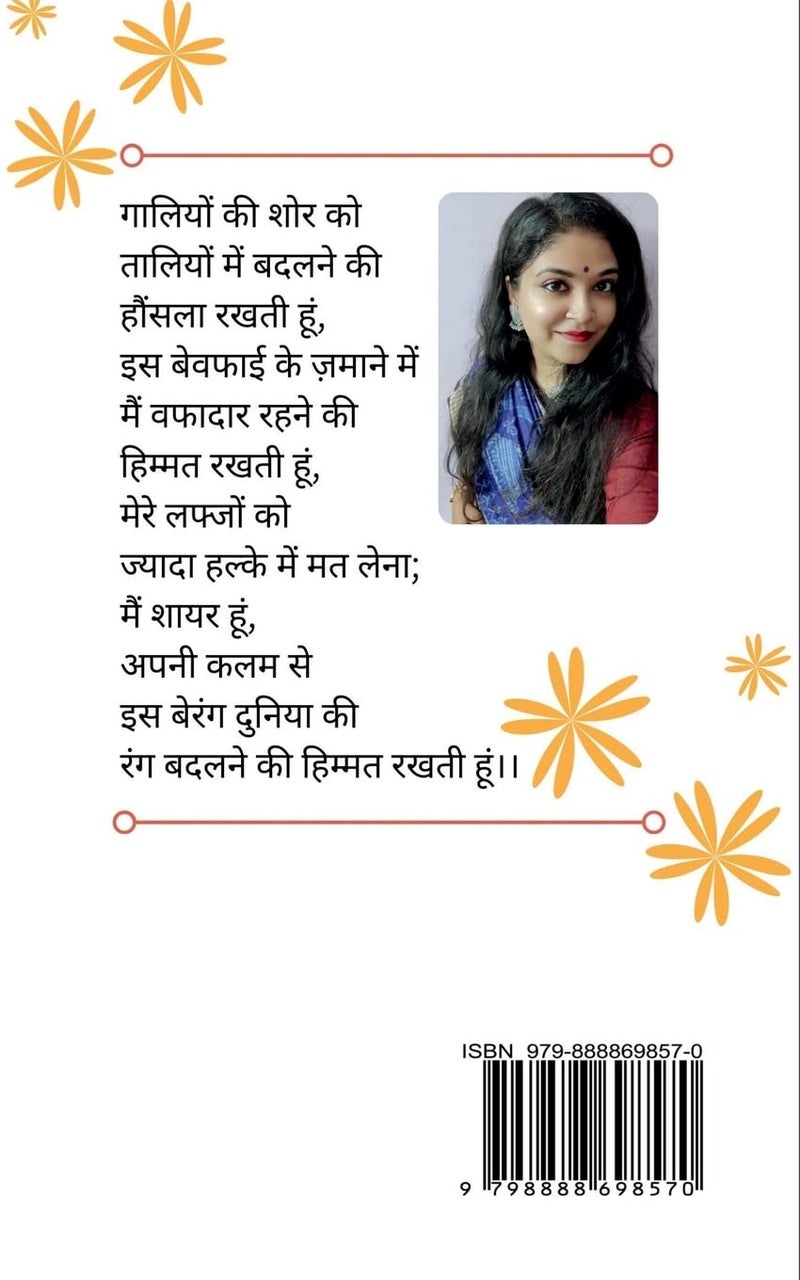 गालियों की शोर को
तालियों में बदलने की
हौंसला रखती हूं,
इस बेवफाई के ज़माने में
मैं वफादार रहने की
हिम्मत रखती हूं,
मेरे लफ्जों को
ज्यादा हल्के में मत लेना;
मैं शायर हूं,
अपनी कलम से
इस बेरंग दुनिया की
रंग बदलने की हिम्मत रखती हूं।।
ISBN 979-888869857-0
9 798888 698570